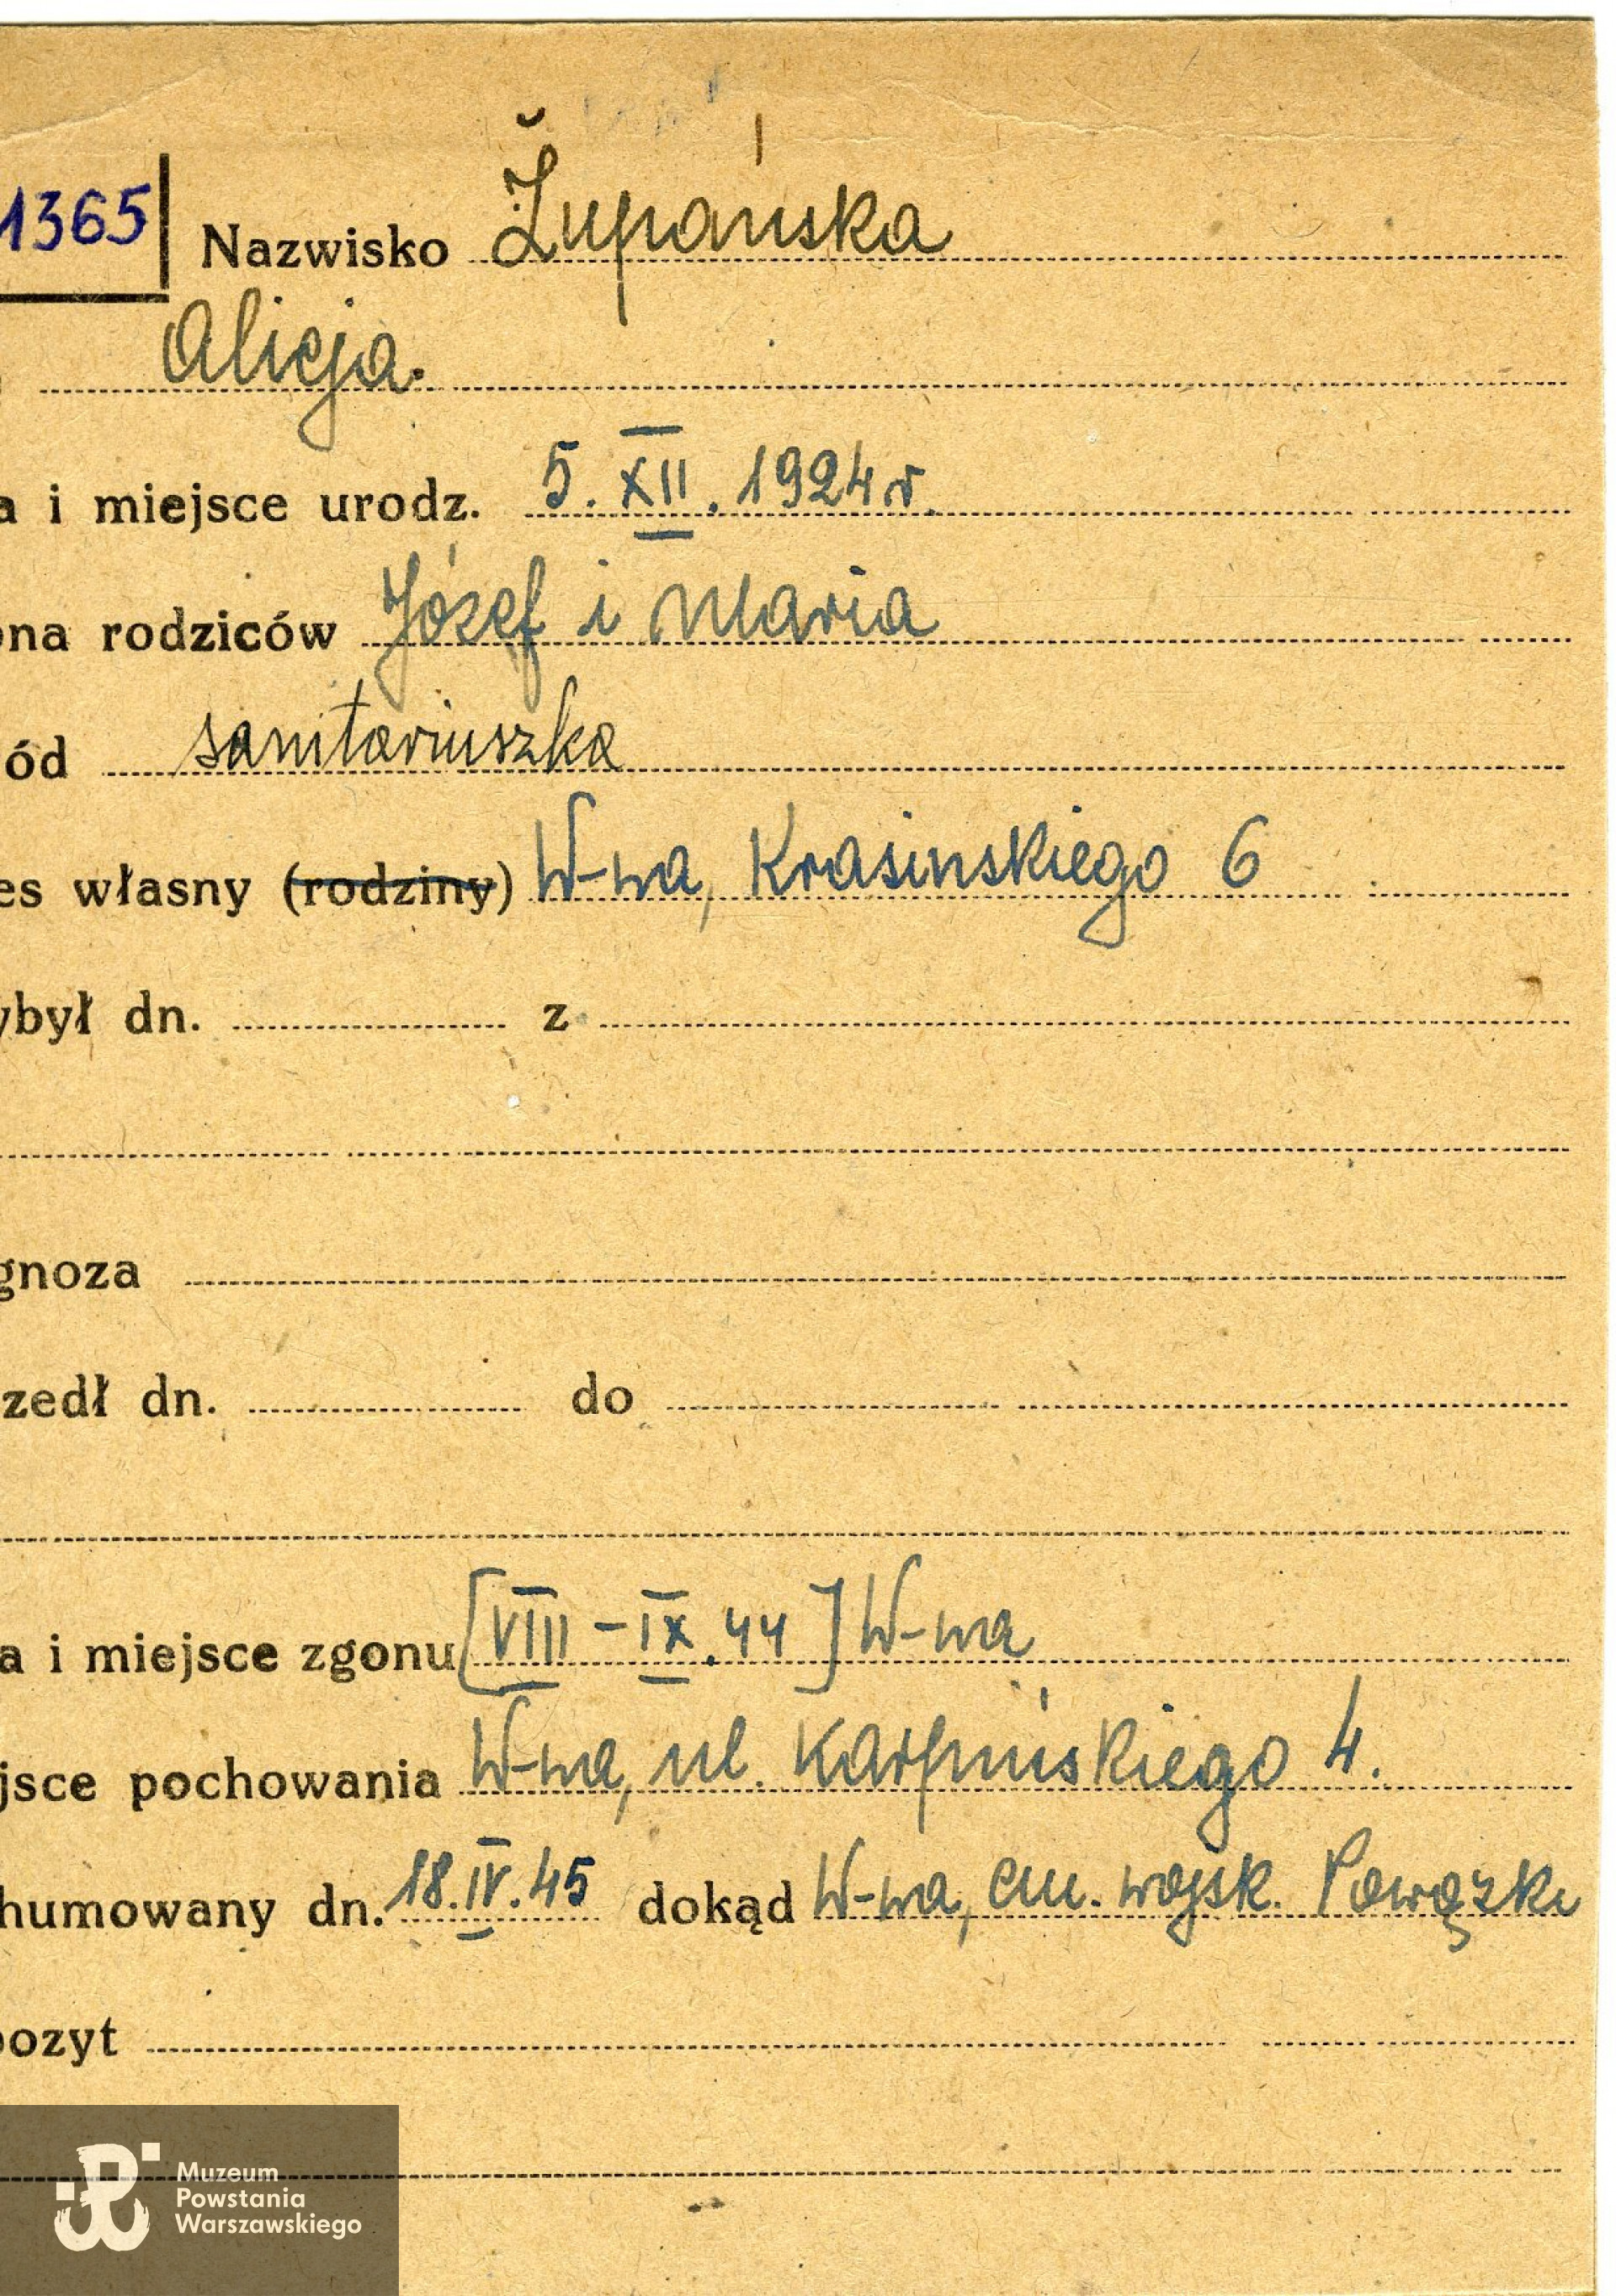 1365 Nazwisko Żupańska
Alicja.
a i miejsce urodz. 5. XII. 1924 r.
ona rodziców Józef i Maria
ód sanitariuszka
es własny (rodziny) W-wa, Krasinskiego 6
ybył dn. z
gnoza
zedł dn. do
a i miejsce zgonu [VIII - IX. 44] W-wa
jsce pochowania W-wa, ul. Karpińskiego 4.
humowany dn. 18. IV. 45 dokąd W-wa, cm. wojsk. Powązki
pozyt
Muzeum
Powstania
Warszawskiego